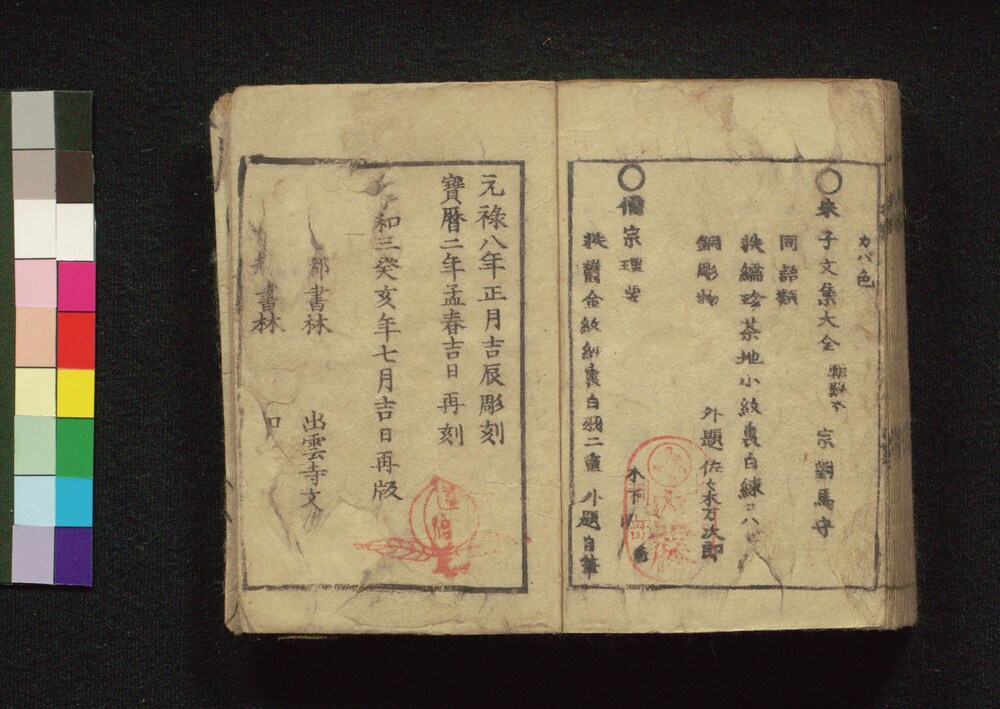 カバ色
○朱子文集大全 朝鮮本 宗對馬守
同 語類
帙繻珍茶地小紋裏白練
銅彫物 外題佐々木万次郎
○儒宗理要 木下
帙 金紋紗裏白 二重 外題自筆
元祿八年正月吉辰彫刻
寶曆二年孟春吉日再刻
和三癸亥年七月吉日再版
都書林 出雲寺文
書林